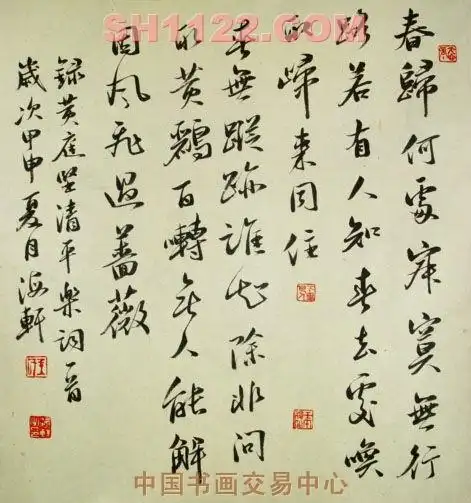 SH1122.COM
春歸何處寂寞無行
路若有人知春去處喚
取歸來同住
春無蹤跡誰知除非問
取黄鸝百囀無人能解
因风飛過薔薇
録黄庭堅清平樂詞一首
歲次甲申夏月海軒
中国书画交易中心